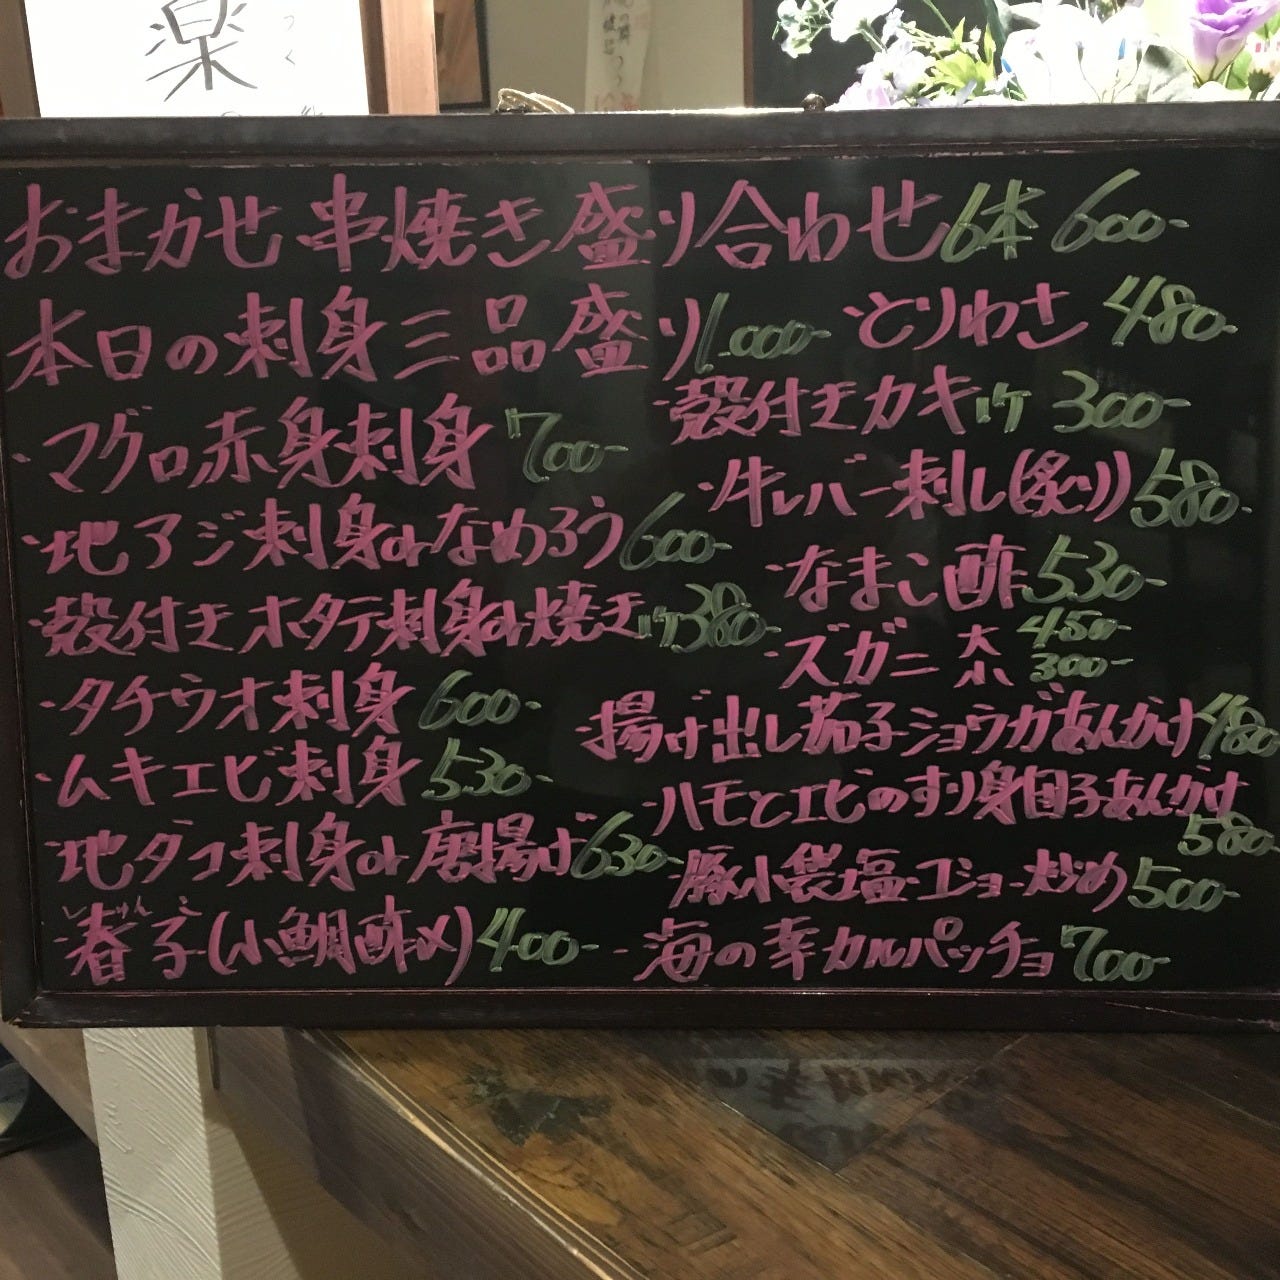 楽
つく
おまかせ串焼き盛り合わせ6本 600-
本日の刺身三品盛り1.000-
・とりわさ 480-
・マグロ赤身刺身 700-
・殻付きカキ1ケ 300-
・牛レバー刺し(炙り)580-
・地アジ刺身orなめろう600-
・なまこ酢530-
・殻付きホタテ刺身or焼き1ケ380-
・ズガニ 大 450-
小 300-
・タチウオ刺身 600-
・揚げ出し茄子ショウガあんかけ480-
・ムキエビ刺身 530-
・ハモとエビのすり身団子あんかけ
580-
・地ダコ刺身or唐揚げ630-
・豚小袋塩コショー炒め500-
・春子(小鯛酢〆)400-
・海の幸カルパッチョ700-